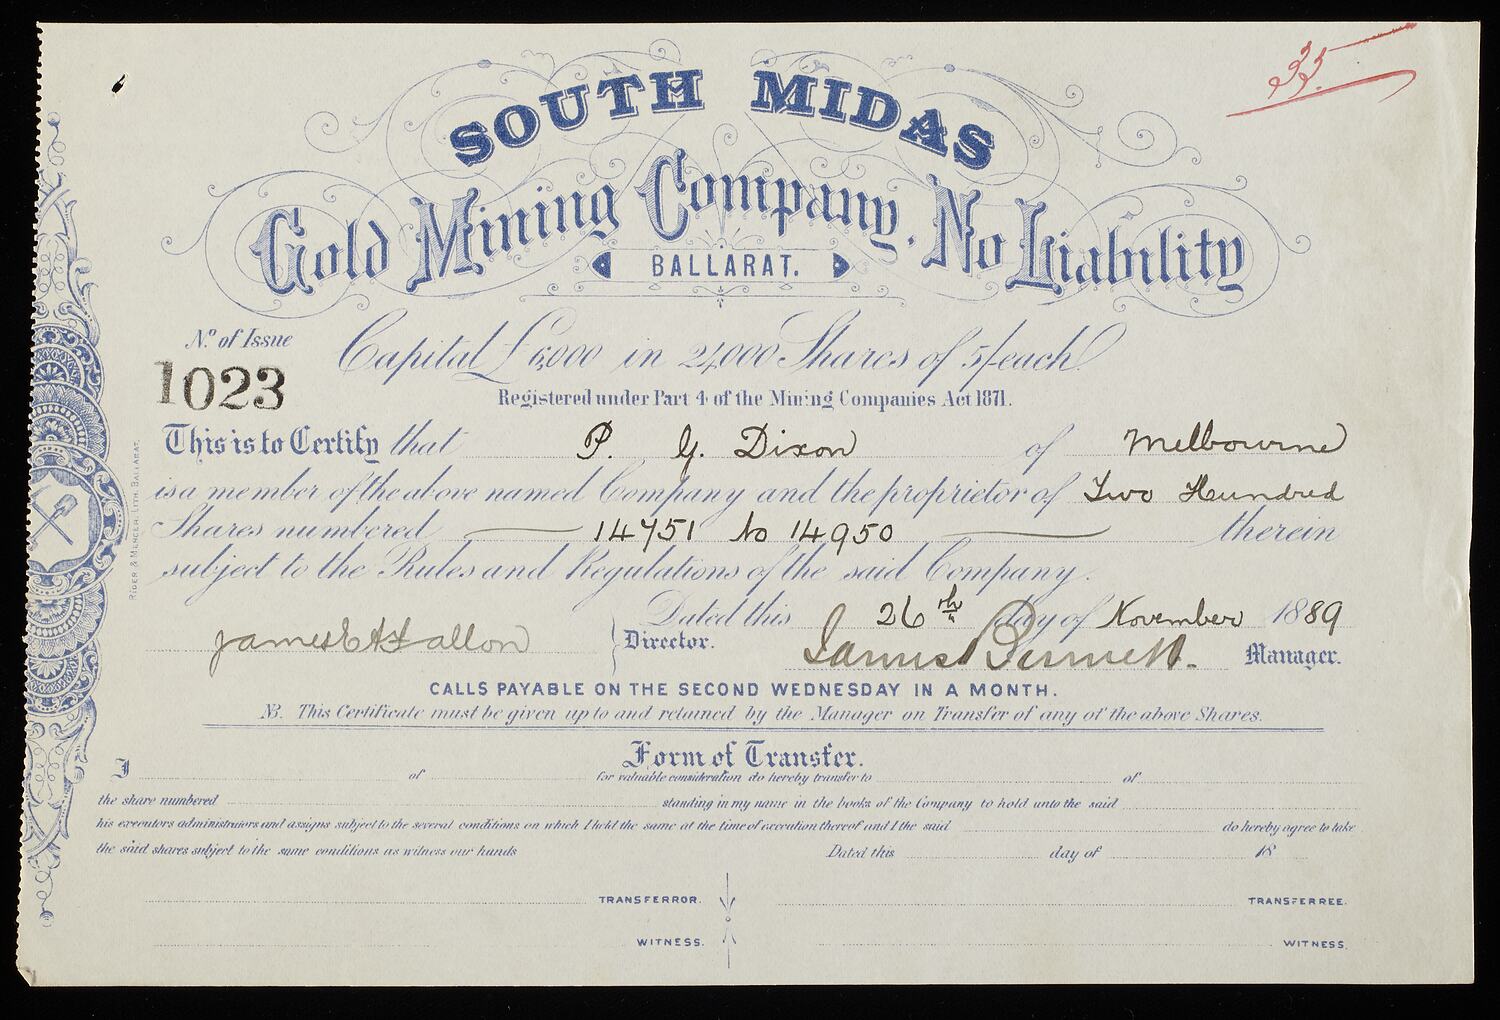 35.
SOUTH MIDAS
Gold Mining Company, No Liability
BALLARAT.
No. of Issue
1023
Capital £6,000 in 24,000 Shares of 5/- each.
Registered under Part 4 of the Mining Companies Act 1871.
This is to Certify that P. G. Dixon of Melbourne
is a member of the above named Company and the proprietor of Two Hundred
Shares numbered 14751 to 14950 therein
subject to the Rules and Regulations of the said Company.
Dated this 26th day of November 1889
James Fallon Director. James Manager.
CALLS PAYABLE ON THE SECOND WEDNESDAY IN A MONTH.
NB. This Certificate must be given up to and retained by the Manager on Transfer of any of the above Shares.
Form of Transfer.
I of for valuable consideration do hereby transfer to of
the share numbered standing in my name in the books of the Company to hold unto the said
his executors administrators and assigns subject to the several conditions on which I held the same at the time of execution thereof and I the said do hereby agree to take
the said shares subject to the same conditions as witness our hands Dated this day of 18
TRANSFERROR. TRANSFERREE.
WITNESS. WITNESS.
RIDER & MERCER, LITH. BALLARAT.